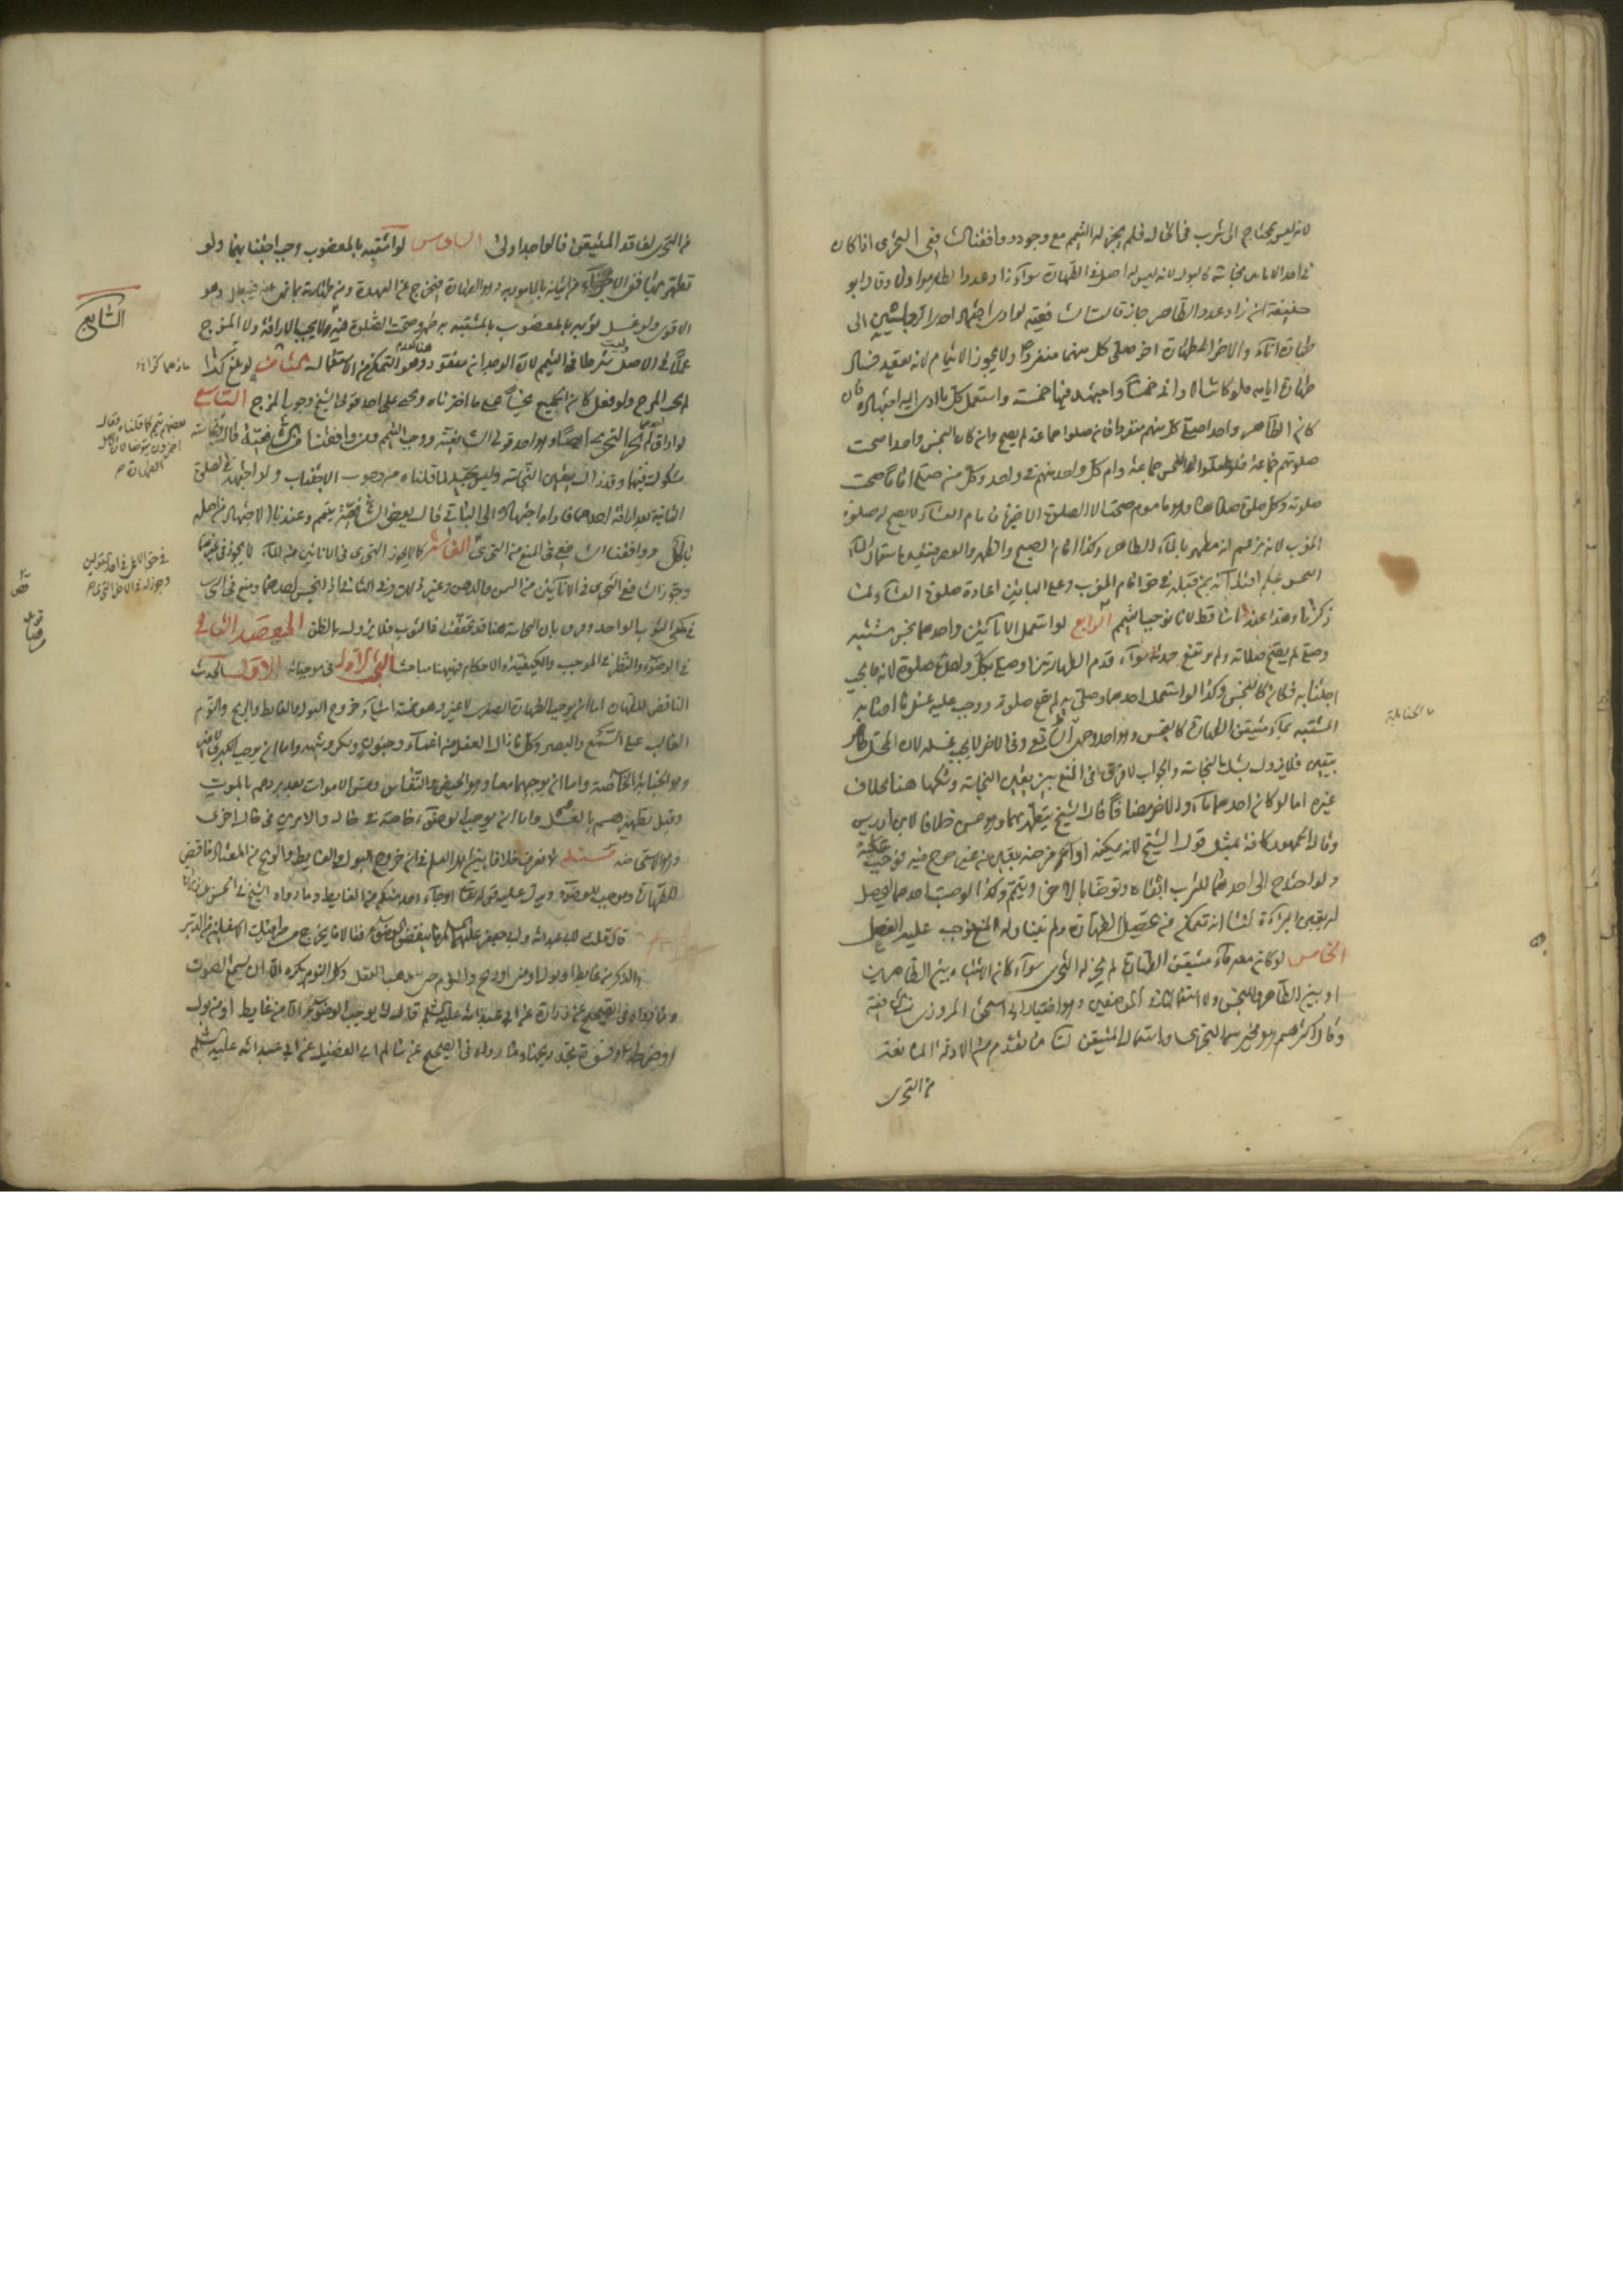 لانه ليس يحتاج الى شرب في الحال فلم يجز له التيمم مع وجوده ووافقنا الشافعي التحري اذا كان
في احد الاناءين نجاسة كالبول لانه ليس له اصل في الطهارة سواء زاد عدد الطاهر اولا وقال ابو
حنيفة ان زاد عدد الطاهر جاز قالت الشافعية لو ادى اجتهاد احد الرجلين الى
طهارة اناء والاخر الى طهارة اخر صلى كل منهما منفردا ولا يجوز الائتمام لانه يعتقد فساد
طهارة امامه فلو كانت الاواني خمسا واجتهد فيها خمسة واستعمل كل ما ادى اليه اجتهاده فان
كان الطاهر واحدا صلى كل منهم منفردا فان صلوا جماعة لم يصح وان كان النجس واحدا صحت
صلوتهم جماعة فلو صلوا الخمس جماعة وام كل واحد منهم في واحد وكل من صلى اماما صحت
صلوته وكل صلوة صلاها وهو ماموم صحت الا الصلوة الاخيرة فامام العشاء لا يصح له صلوة
المغرب لانه يزعم انه مطهر بالماء الطاهر وكذا امام الصبح والظهر والعصر فتعين استعمال الماء
النجس عليهم ابتداء به من قبله في حق امام المغرب وعلى الباقين اعادة صلوة العشاء لما
ذكرنا وهذا عندنا ساقط لانا نوجب التيمم الرابع لو استعمل الاناءين واحدهما نجس مشتبه
وصلى لم يصح صلاته ولم يرتفع حدثه سواء قدم الطهارتين او صلى بكل واحدة صلوة لانه ما يجب
اجتنابه فكان كالنجس وكذا لو استعمل احدهما وصلى به لم تصح صلوته ووجب عليه غسل ما اصابه
المشتبه بماء متيقن الطهارة كالنجس وهو احد وجهي الشافعي وفي الاخر لا يجب غسله لان المحل طاهر
بيقين فلا يزول بشك النجاسة والجواب لا فرق في المنع بين يقين النجاسة وشكها هنا بخلاف
غيره اما لو كان احدهما ماء والاخر مضافا قال الشيخ يتطهر بهما وهو حسن خلافا لابن ادريس
وقال الجمهور كافة بمثل قول الشيخ لانه يمكنه اداء فرضه بيقين من غير حرج فيه فوجب عليه
ولو احتاج الى احدهما للشرب ابقاه وتوضا بالاخر وتيمم وكذا لو صب احدهما ليحصل
له يقين البراءة لنا انه تمكن من تحصيل الطهارة ولم يتناوله المنع فوجب عليه الفعل
الخامس لو كان معه ماء متيقن الطهارة لم يجز له التحري سواء كان الاشتباه بين الطاهرين
او بين الطاهر والنجس ولا استعمالها في الموضعين وهو اختيار ابي اسحق المروزي من الشافعية
وقال اكثرهم هو مخير بين التحري واستعمال المتيقن لنا ما تقدم من الادلة المانعة
من التحري
الحنابلة
من التحري لفاقد المتيقن فالواجد اولى السادس لو اشتبه بالمغضوب وجب اجتنابهما ولو
تطهر بهما ففي الاجزاء من اتيانه بالمامور به وهو الطهارة فيخرج عن العهدة ومن طهارته بما نهي عنه فيبطل وهو
الاقوى ولو غسل ثوبه بالمغضوب او بالمشتبه به طهر وصحت الصلوة فيه ولا يجب الاراقة ولا المزج
عملا في الاصل وليست شرطا في التيمم لان الوجدان مفقود وهو هنا عدم التمكن من الاستعمال الثامن لو بلغ كرا
لم يجب المزج ولو فعل كان الجميع نجسا على ما اخترناه ويجي على احد قولي الشيخ وجوب المزج التاسع
لو اراق احدهما لم يجز التحري ايضا وهو احد قولي الشافعية ووجب التيمم ومن وافقنا من الشافعية قالوا نجاسته
مشكوك فيها وقد زال يقين النجاسة وليس بجيد لما قلناه من وجوب الاجتناب ولو اجتهد في الصلوة
الثانية بعد اراقة احدهما واداه اجتهاده الى الباقي قال بعض الشافعية يتيمم وعندنا الاجتهاد من اصله
باطل ووافقنا الشافعي في المنع من التحري العاشر كما لا يجوز التحري في الاناءين من الماء لا يجوز في غيرهما
وجوز الشافعي التحري في الاناءين من السمن والدهن وغير ذلك وفي الثياب اذا نجس احدهما ومنع في التحري
في كمي الثوب الواحد وفرق بان النجاسة هنا قد تحققت في الثوب فلا يزول بالظن المقصد الثاني
في الوضوء والنظر في الموجب والكيفية والاحكام فههنا مباحث البحث الاول في موجباته الاول الحدث
الناقض للطهارة اما ان يوجب الطهارة الصغرى لا غير وهو خمسة اشياء خروج البول والغايط والريح والنوم
الغالب على السمع والبصر وكل ما ازال العقل من اغماء وجنون وسكر وشبهه واما ان يوجب الكبرى لا غير
وهو الجنابة الخاصة واما ان يوجبهما معا وهو الحيض والنفاس ومس الاموات بعد بردهم بالموت
وقبل تطهيرهم بالغسل واما ان يوجب الوضوء خاصة في حال والامرين في حال اخرى
وهو الاستحاضة مسئله لا نعرف خلافا بين اهل العلم في ان خروج البول والغايط والريح من المعتاد ناقض
للطهارة وموجب للوضوء ويدل عليه قوله تعالى او جاء احد منكم من الغايط وما رواه الشيخ في الحسن عن زرارة
قال قلت لابي عبد الله وابي جعفر عليهما السلام ما ينقض الوضوء فقالا ما يخرج من طرفيك الاسفلين من الدبر
والذكر من غايط او بول او مني او ريح والنوم حتى يذهب العقل وكل النوم يكره الا ان تسمع الصوت
وما رواه في الصحيح عن زرارة عن ابي عبد الله عليه السلم قال لا يوجب الوضوء الا من غايط او من بول
او ضرطة او فسوة تجد ريحها وما رواه في الصحيح عن سالم ابي الفضل عن ابي عبد الله عليه السلم
السابع
بعضهم يتيمم كما قلناه وقال
اخرون يتوضا لان الاصل
الطهارة